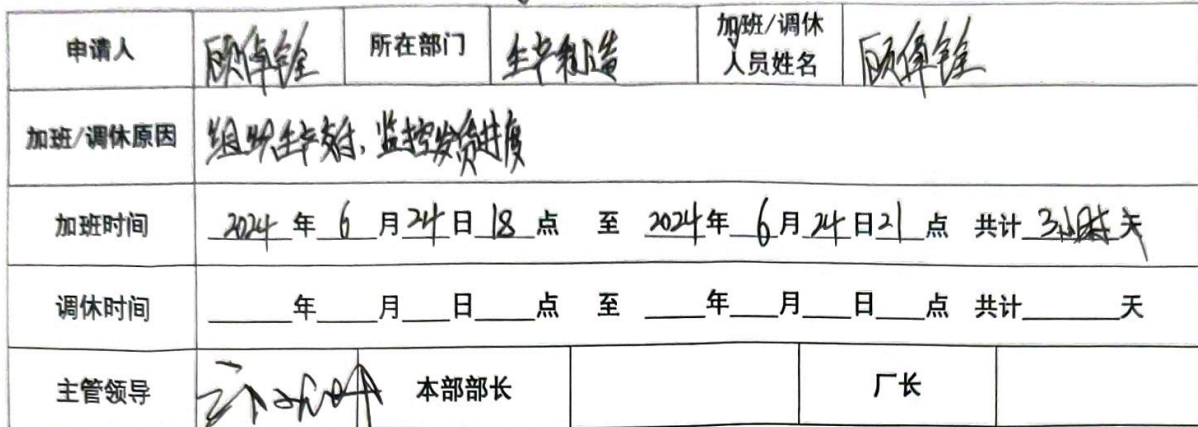 申请人 顾倬铨 所在部门 生产制造 加班/调休
人员姓名 顾倬铨
加班/调休原因 组织生产交付、监控发货进度
加班时间 2024 年 6 月 24 日 18 点 至 2024 年 6 月 24 日 21 点 共计 3小时 天
调休时间 年 月 日 点 至 年 月 日 点 共计 天
主管领导 本部部长 厂长